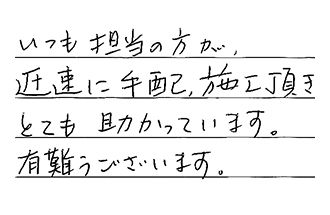 いつも担当の方が、
迅速に手配、施工頂き
とても助かっています。
有難うございます。